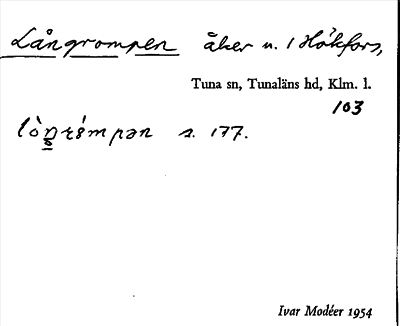 Långrompen åker u. 1 Hökfors,
Tuna sn, Tunaläns hd, Klm. l.
103
s. 177.
Ivar Modéer 1954